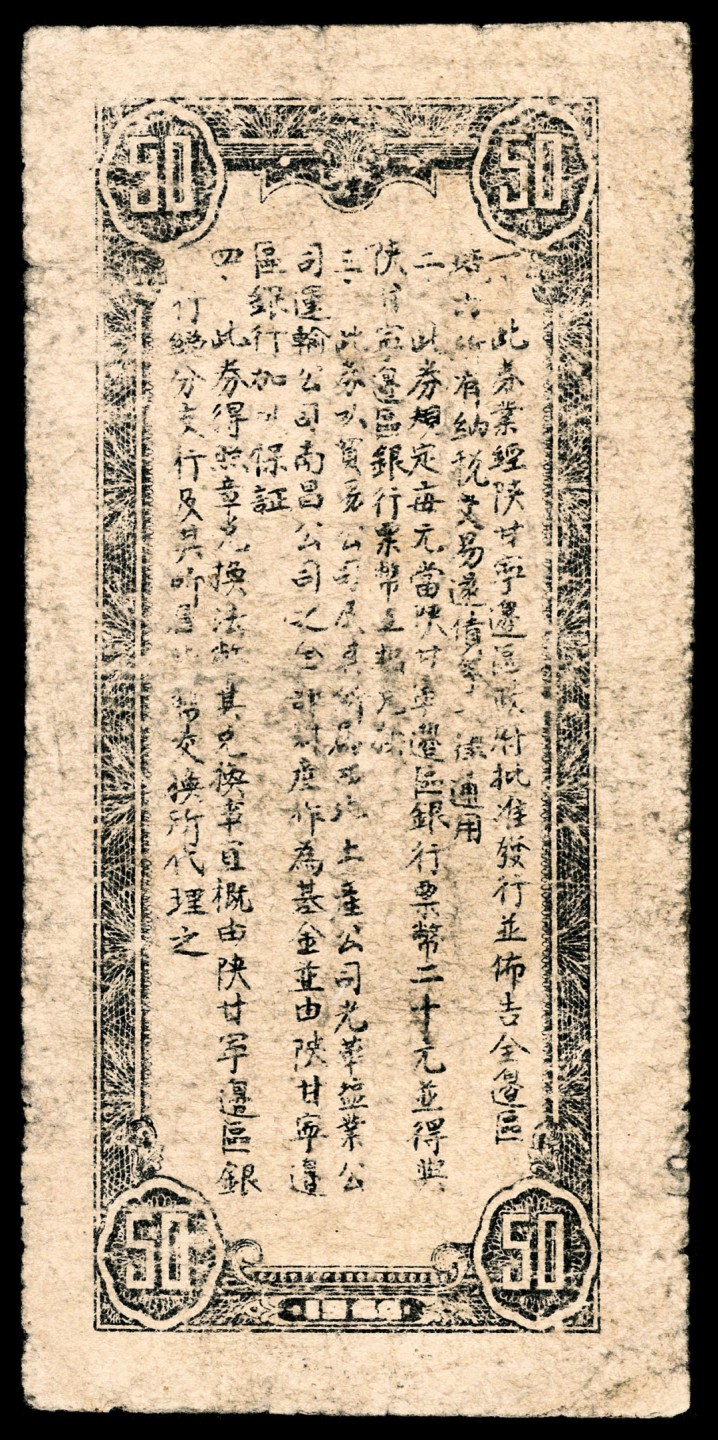 50 50
一、此券業經陝甘寧邊區政府批准發行並佈告全邊區
所有納稅交易還債等一律通用
二、此券規定每元當陝甘寧邊區銀行票幣二十元並得與
陝甘寧邊區銀行票幣互相兌換
三、此券以貿易公司及其所屬西北土產公司光華塩業公
司運輸公司南昌公司之全部財產作為基金並由陝甘寧邊
區銀行加以保証
四、此券得照章兌換法幣其兌換事宜概由陝甘寧邊區銀
行總分支行及其所屬貨幣交換所代理之
50 50